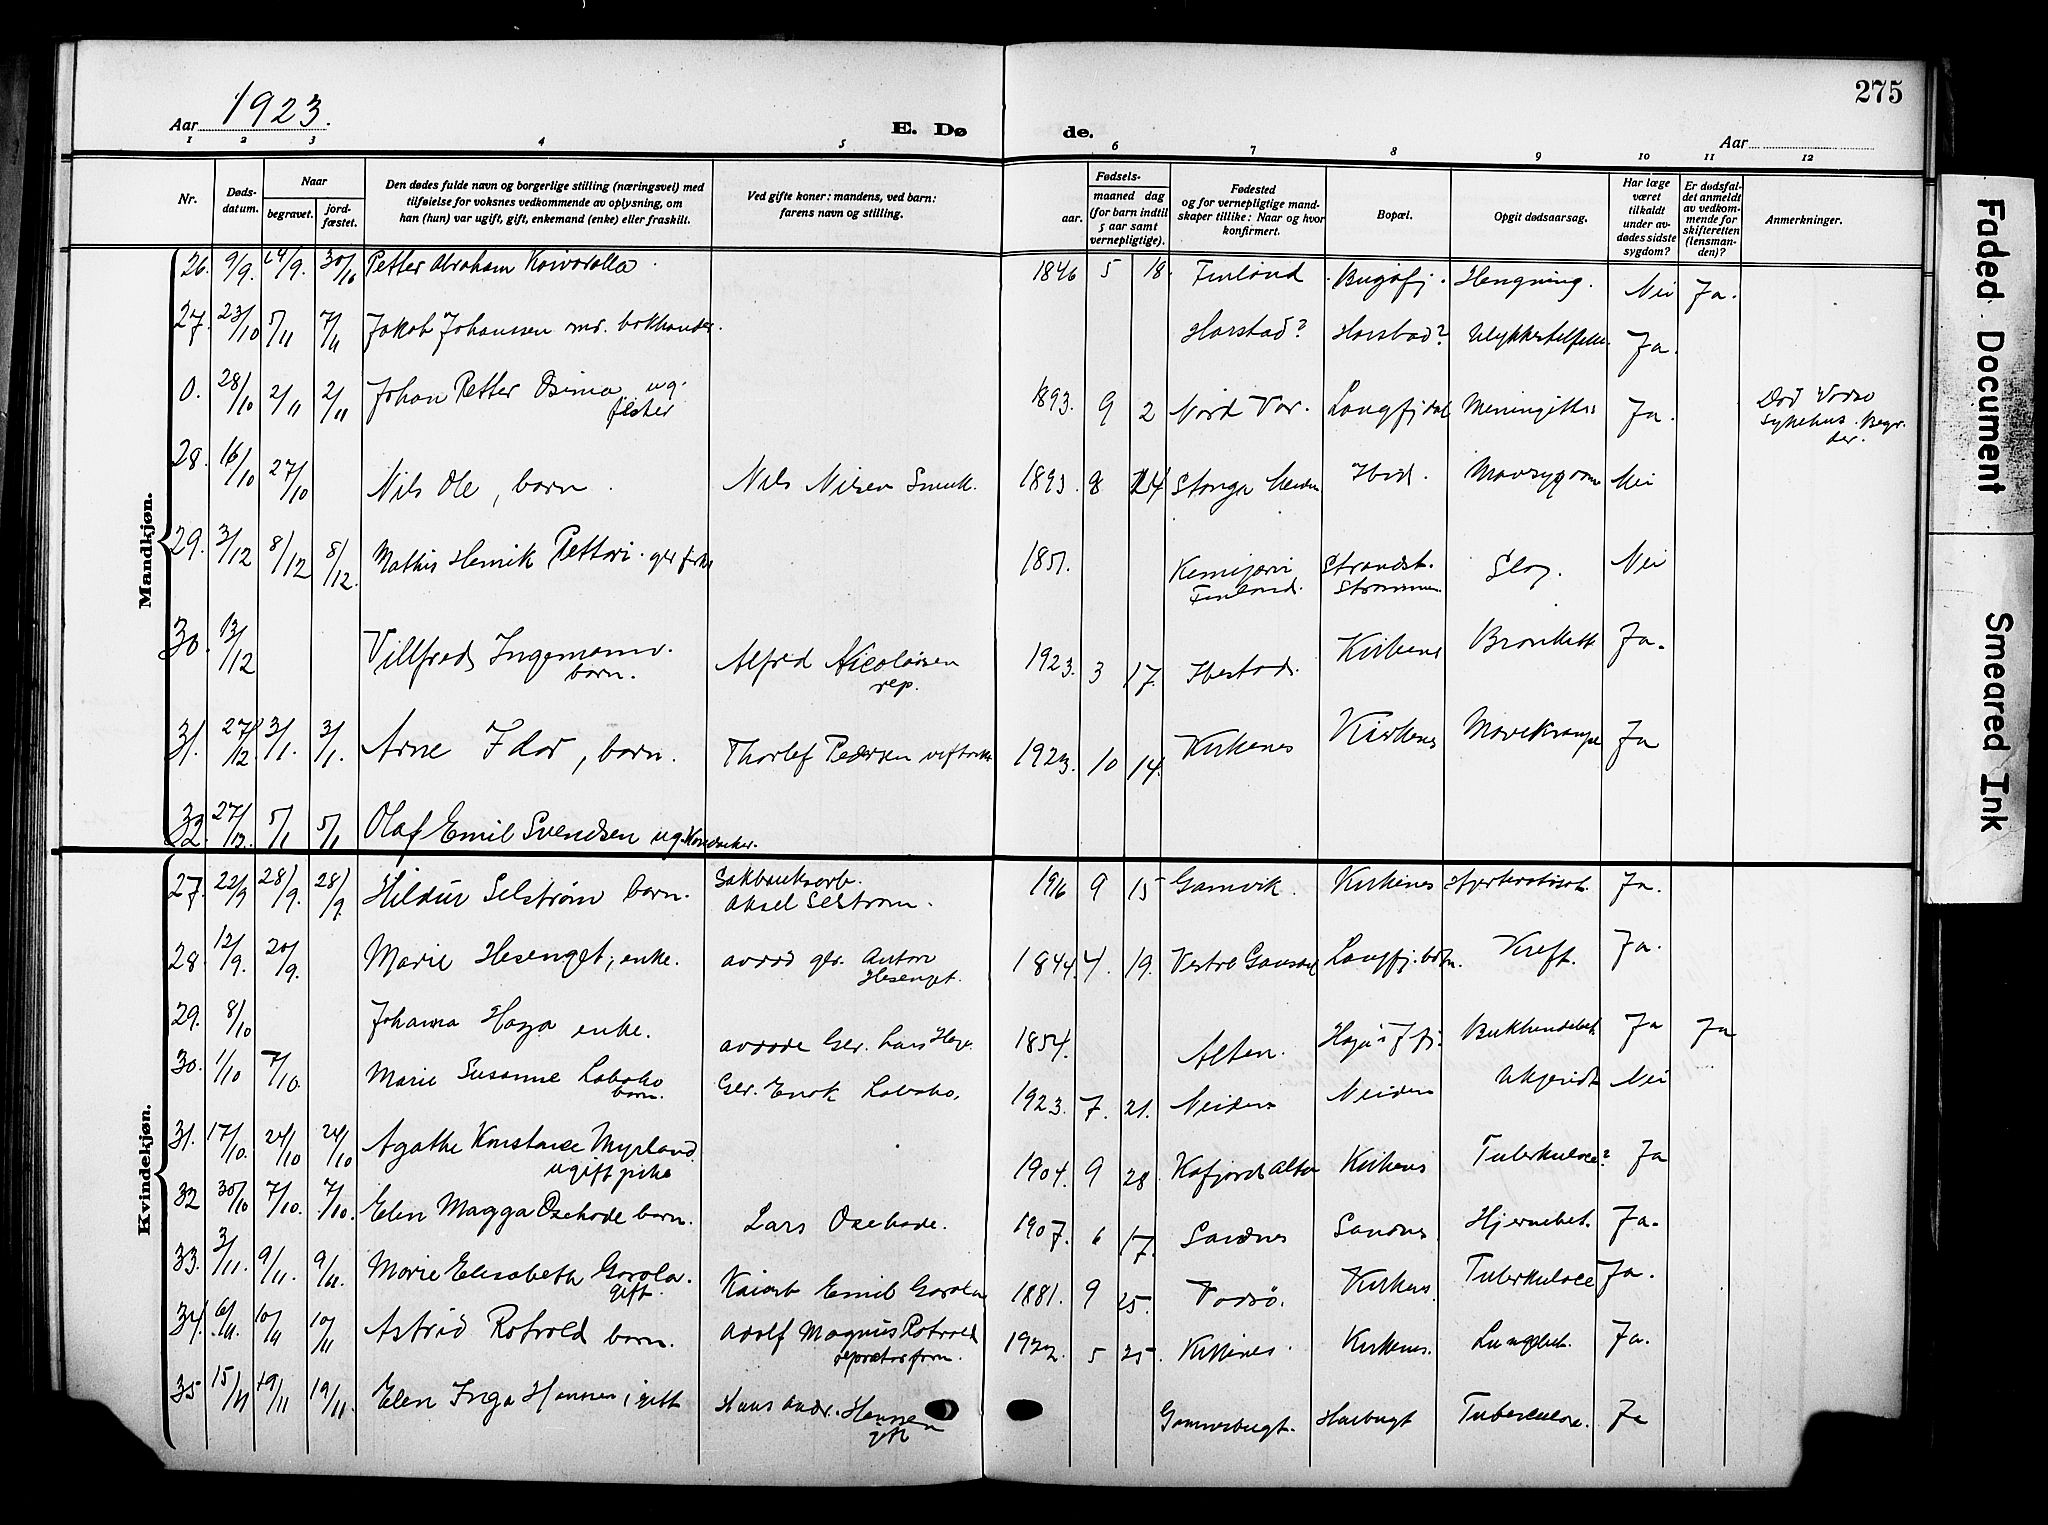 Aar 1923.
E. Dø de.
Aar
275
1 2 3 4 5 6 7 8 9 10 11 12
Nr.
Døds-datum.
Naar
begravet.
jord-fæstet.
Den dødes fulde navn og borgerlige stilling (næringsvei) med
tilføielse for voksnes vedkommende av oplysning, om
han (hun) var ugift, gift, enkemand (enke) eller fraskilt.
Ved gifte koner: mandens, ved barn:
farens navn og stilling.
Fødsels-
aar.
maaned dag
(for barn indtil
5 aar samt
vernepligtige).
Fødested
og for vernepligtige mand-
skaper tillike: Naar og hvor
konfirmert.
Bopæl.
Opgit dødsaarsag.
Har læge
været
tilkaldt
under av-
dødes sidste
sygdom?
Er dødsfal-
det anmeldt
av vedkom-
mende for
skifteretten
(lensman-
den)?
Anmerkninger.
Mandkjøn.
26. 9/9. 14/9. 30/10 Petter Abraham 1846 5 18. Finland Bugøfj. Hengning. Nei Ja.
27. 23/10 5/11 7/11 Jakob Johanssen Harstad? Harstad? Ja.
0. 28/10 2/11 2/11 Johan Petter Osima ug. fisker 1893. 9 2 Nord Var. Langfjdal Ja. Død Vadsø
28. 16/10 27/10 Nils Ole, barn. Nils Nilsen 1893. 8 Ibid. Mavsygdom Nei
29. 3/12 8/12 8/12. Mathis Henrik Pettari 1851. Kemijärvi Finland. Strandst. Strømmen Slag. Nei
30. 13/12 Villfred Ingemann. barn. Alfred Nicolaisen rep. 1923. 3 17. Ibestad. Kirkenes Ja.
31. 27/12 3/1. 3/1. Arne Idar, barn. Thorlef Pedersen 1923. 10 14. Kirkenes Kirkenes Mavekrampe Ja
32. 27/12. 5/1 5/1 Olaf Emil Svendsen ug.
Kvindekjøn.
27. 22/9 28/9. 28/9. Hildur Selstrøm barn. Aksel Selstrøm. 1916 9 15 Gamvik. Kirkenes Ja.
28. 12/9. 20/9. Marie Hesenget, enke. Anton Hesenget. 1844 4. 19. Vestre Gausdal Langfj.botn. Kreft. Ja.
29. 8/10 Johanna enke. 1854. Alten. Ja Ja
30. 1/10 7/10. Marie Susanne Labaho barn. Gbr. Enok Labaho. 1923. 7. 21. Neiden Neiden Ukjendt Nei
31. 17/10. 24/10 24/10 Agathe Konstanse Myrland ugift pike 1904. 9 28 Kafjord Alten Kirkenes Tuberkulose? Ja
32 30/10 7/10. 7/10. Elen Magga barn. Lars 1907. 6 17. Sandnes Sandnes Hjernebet. Ja.
33. 3/11. 9/11. 9/11. Marie Elisabeth Garola. gift. Emil Garola 1881. 9 25. Vadsø. Kirkenes. Tuberkulose Ja.
34. 6/11. 10/11 10/11 Astrid Rotvold barn. Adolf Magnus Rotvold 1922. 5 25. Kirkenes. Kirkenes. Lungebet. Ja.
35 15/11 19/11 19/11. Elen Inga Hansen, gift Hans Andr. Hansen gift Tuberculose. Ja
Faded Document
Smeared Ink